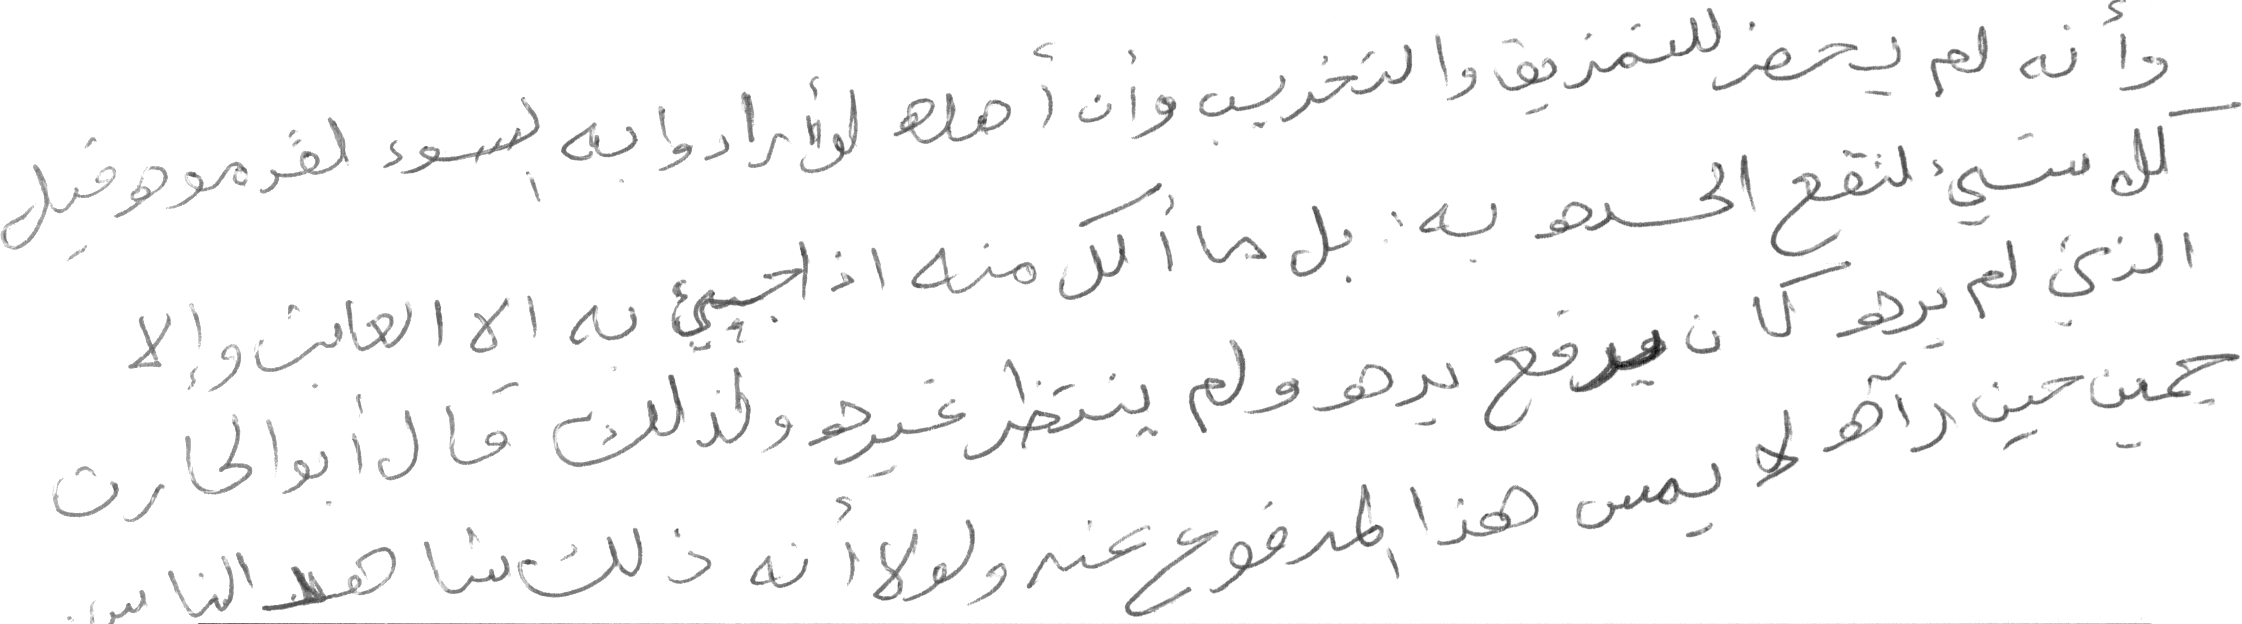 وأنه لم يحضر للتمزيق والتخريب وأن أهله لو أرادوا به السوء لقدموه قبل
كل شيء لتقع الحده به بل ما أكل منه اذا جيئ به الا العابث وإلا
الذي لم يره كان يرفع يده ولم ينتظر غيره ولذلك قال أبو الحارث
جمين حين رآه لا يمس هذا المدفوع عنه ولولا أنه ذلك شاهد الناس